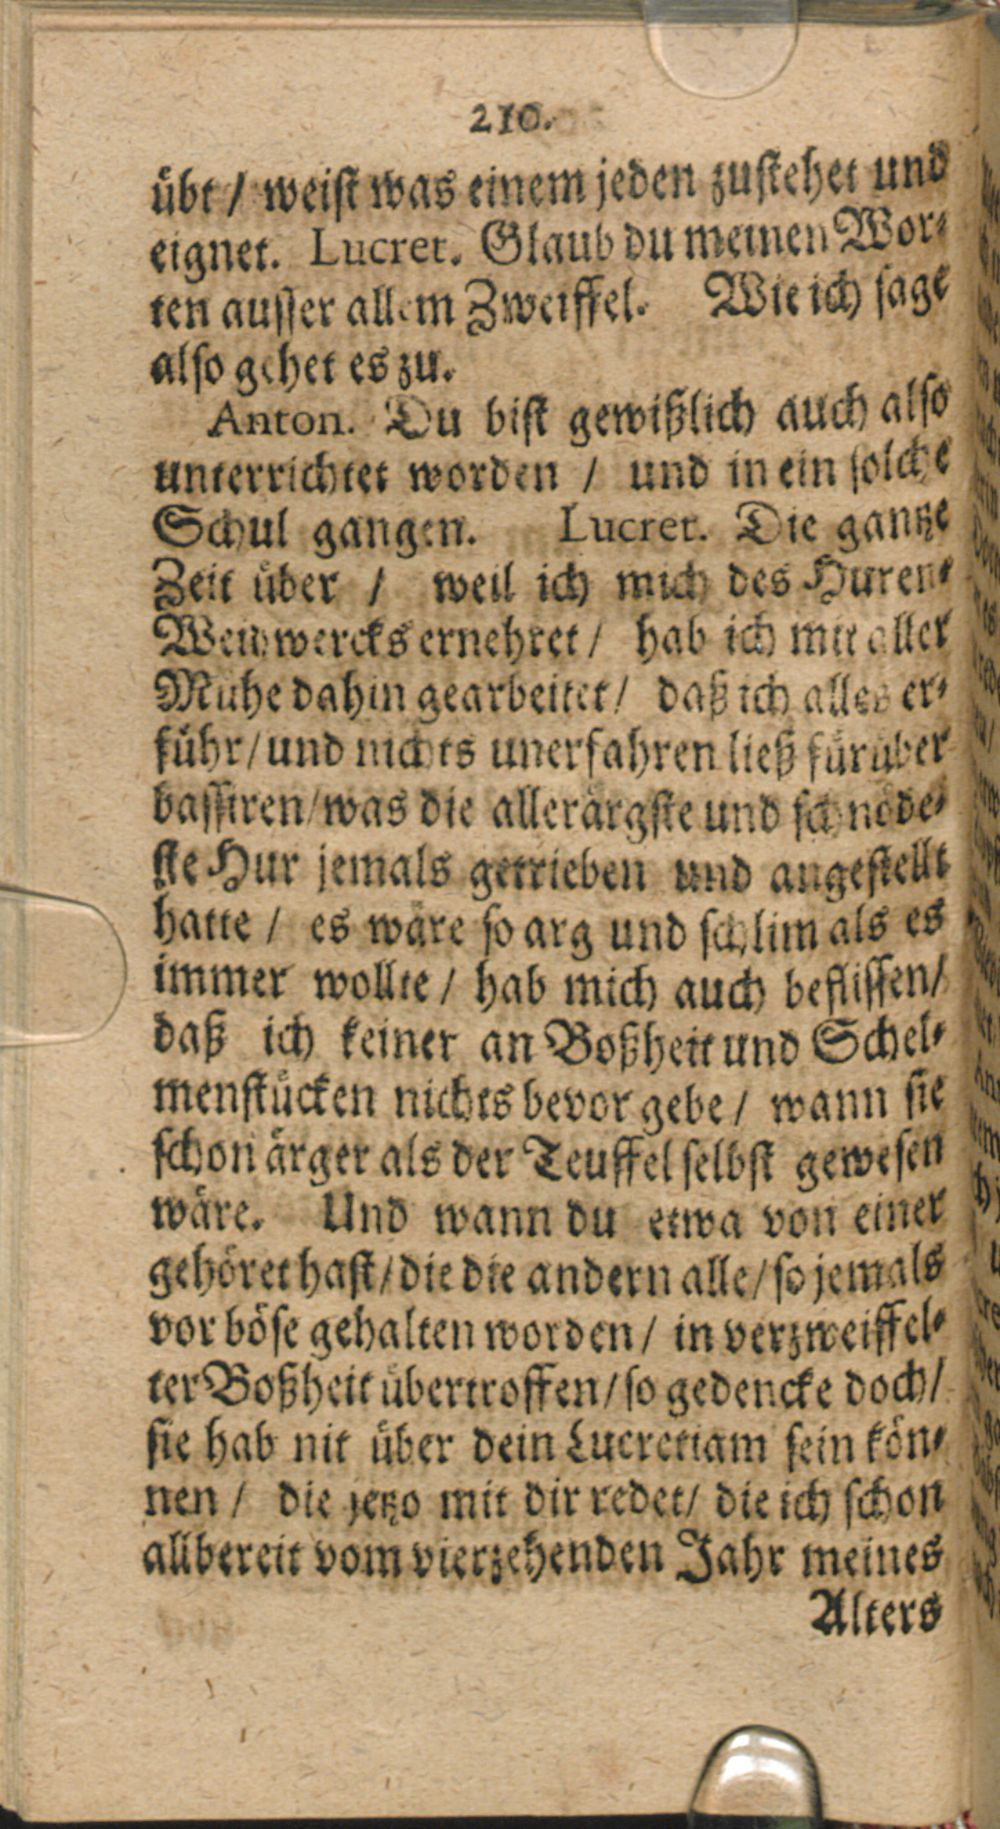 210.
übt / weist was einem jeden zustehet und
eignet. Lucret. Glaub du meinen Wor-
ten ausser allem Zweiffel. Wie ich sage
also gehet es zu.
Anton. Du bist gewißlich auch also
unterrichtet worden / und in ein solche
Schul gangen. Lucret. Die gantze
Zeit über / weil ich mich des Huren-
Weidwercks ernehret / hab ich mit aller
Mühe dahin gearbeitet / daß ich alles er-
führ / und nichts unerfahren ließ fürüber
bassiren / was die allerärgste und schnöde-
ste Hur jemals getrieben und angestellt
hatte / es wäre so arg und schlim als es
immer wollte / hab mich auch beflissen /
daß ich keiner an Boßheit und Schel-
menstücken nichts bevor gebe / wann sie
schon ärger als der Teuffel selbst gewesen
wäre. Und wann du etwa von einer
gehöret hast / die die andern alle / so jemals
vor böse gehalten worden / in verzweiffel-
ter Boßheit übertroffen / so gedencke doch /
sie hab nit über dein Lucretiam sein kön-
nen / die jetzo mit dir redet / die ich schon
allbereit vom vierzehenden Jahr meines
Alters